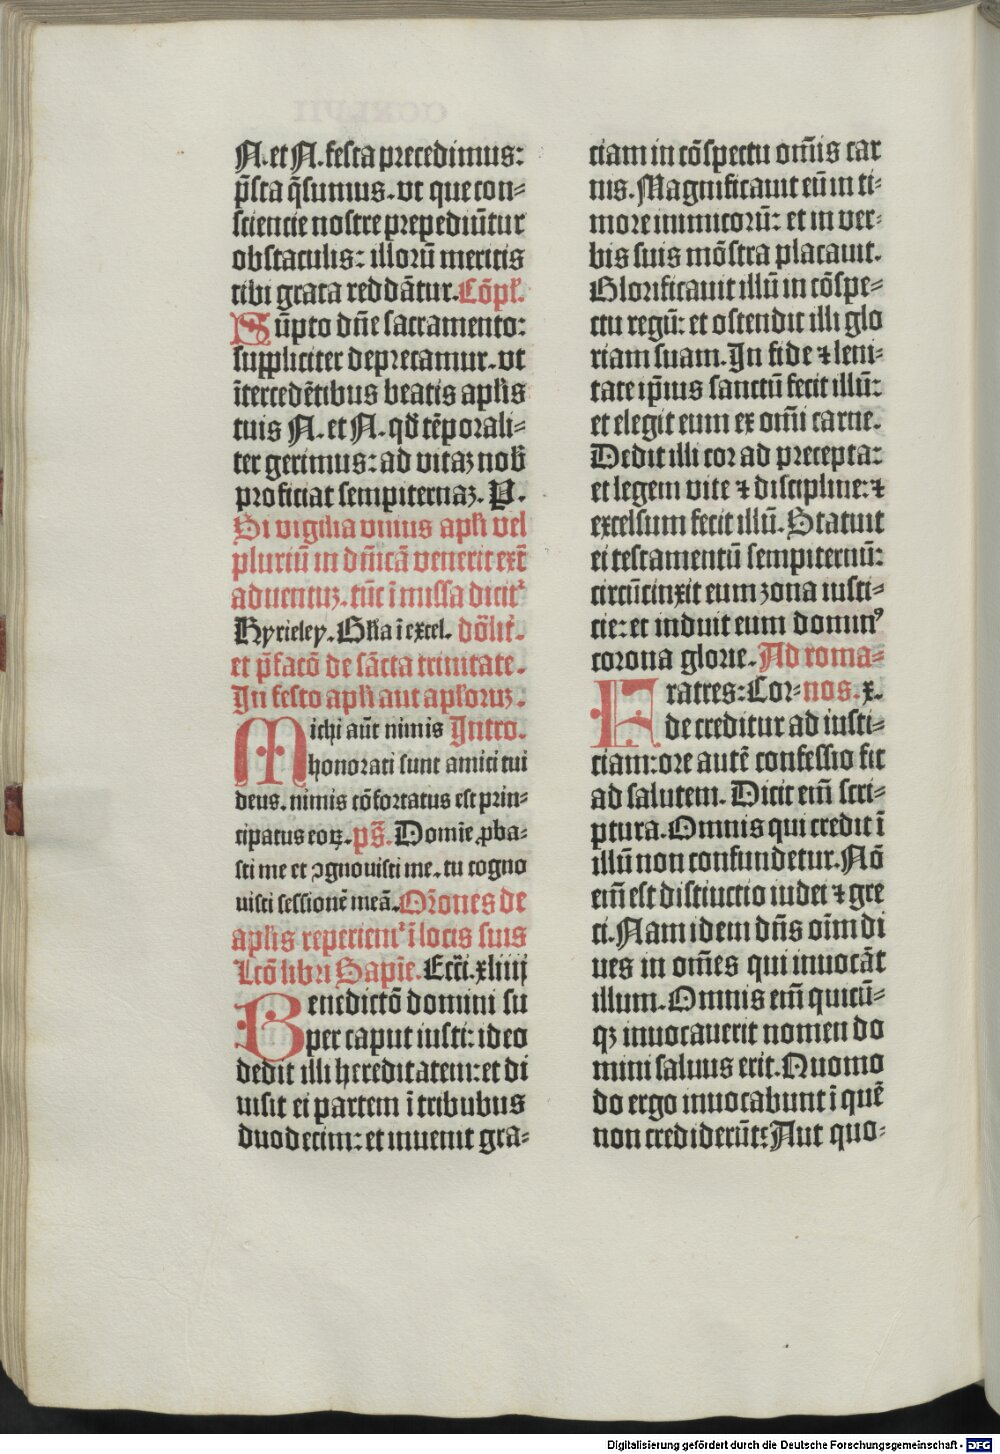 N. et N. festa precedimus:
p̄sta q̄sumus. vt que con⸗
sciencie nostre prepediūtur
obstaculis: illorū meritis
tibi grata reddātur. Cōpl'.
Sūpto dn̄e sacramento:
suppliciter deprecamur. vt
ītercedētibus beatis aplīs
tuis N. et N. qd̄ tēporali⸗
ter gerimus: ad vitaꝫ nob̄
proficiat sempiternaꝫ. P.
Si vigilia vnius apl̄i vel
pluriū in dn̄icā venerit ext̄
aduentuꝫ. tūc ī missa dicit᷑
Kyrieley. Glīa ī excel. dōlit᷑.
et p̄facō de sācta trinitate.
In festo apl̄i aut apl̄oruꝫ.
Michi aūt nimis Intro.
honorati sunt amici tui
deus. nimis cōfortatus est prin⸗
cipatus eoꝝ. ps̄. Domīe ꝓba⸗
sti me et ꝯgnouisti me. tu cogno
uisti sessionē meā. Or̄ones de
apl̄is reperient᷑ ī locis suis
Lcō libri Sapīe. Ecc̄i. xliiij
Benedictō domini su
per caput iusti: ideo
dedit illi hereditatem: et di
uisit ei partem ī tribubus
duodecim: et inuenit gra⸗
ciam in cōspectu om̄is car
nis. Magnificauit eū in ti⸗
more inimicorū: et in ver⸗
bis suis mōstra placauit.
Glorificauit illū in cōspe⸗
ctu regū: et ostendit illi glo
riam suam. In fide ⁊ leni⸗
tate ip̄ius sanctū fecit illū:
et elegit eum ex om̄i carne.
Dedit illi cor ad precepta:
et legem vite ⁊ discipline: ⁊
excelsum fecit illū. Statuit
ei testamentū sempiternū:
circūcinxit eum zona iusti⸗
cie: et induit eum dominꝰ
corona glorie. Ad roma⸗
Fratres: Cor⸗ nos. x.
de creditur ad iusti⸗
ciam: ore autē confessio fit
ad salutem. Dicit eīm scri⸗
ptura. Omnis qui credit ī
illū non confundetur. Nō
eīm est distinctio iudei ⁊ gre
ci. Nam idem dn̄s oīm di
ues in om̄es qui inuocāt
illum. Omnis eīm quicū⸗
qꝫ inuocauerit nomen do
mini saluus erit. Quomo
do ergo inuocabunt ī quē
non crediderūt: Aut quo⸗
Digitalisierung gefördert durch die Deutsche Forschungsgemeinschaft - DFG